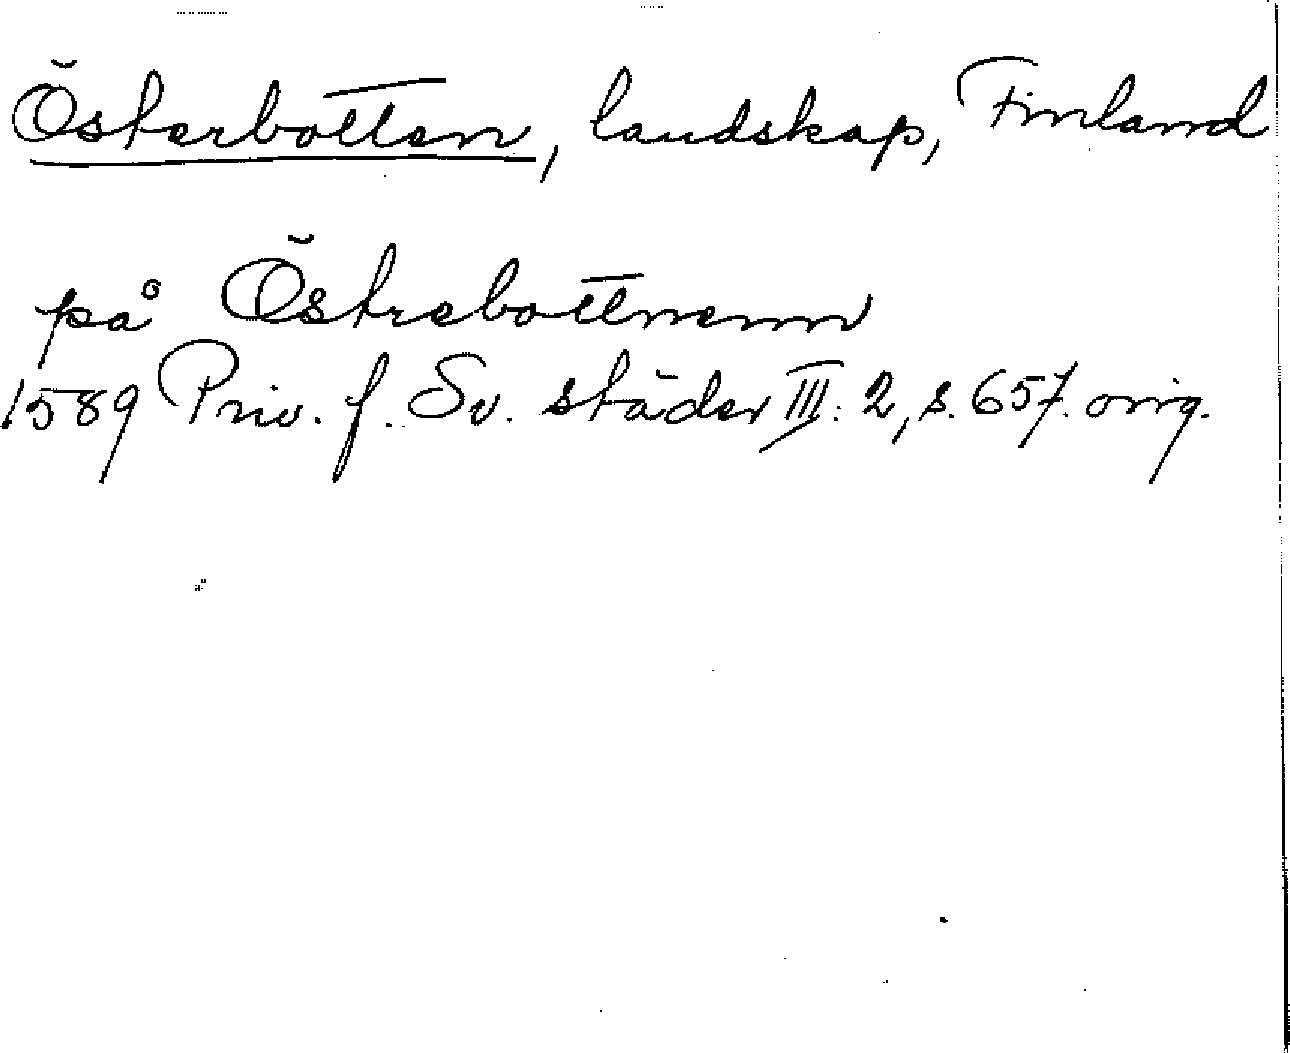 Österbotten, landskap, Finland
på Östrebottnenn
1589 Priv. f. Sv. städer III: 2, s. 657. orig.